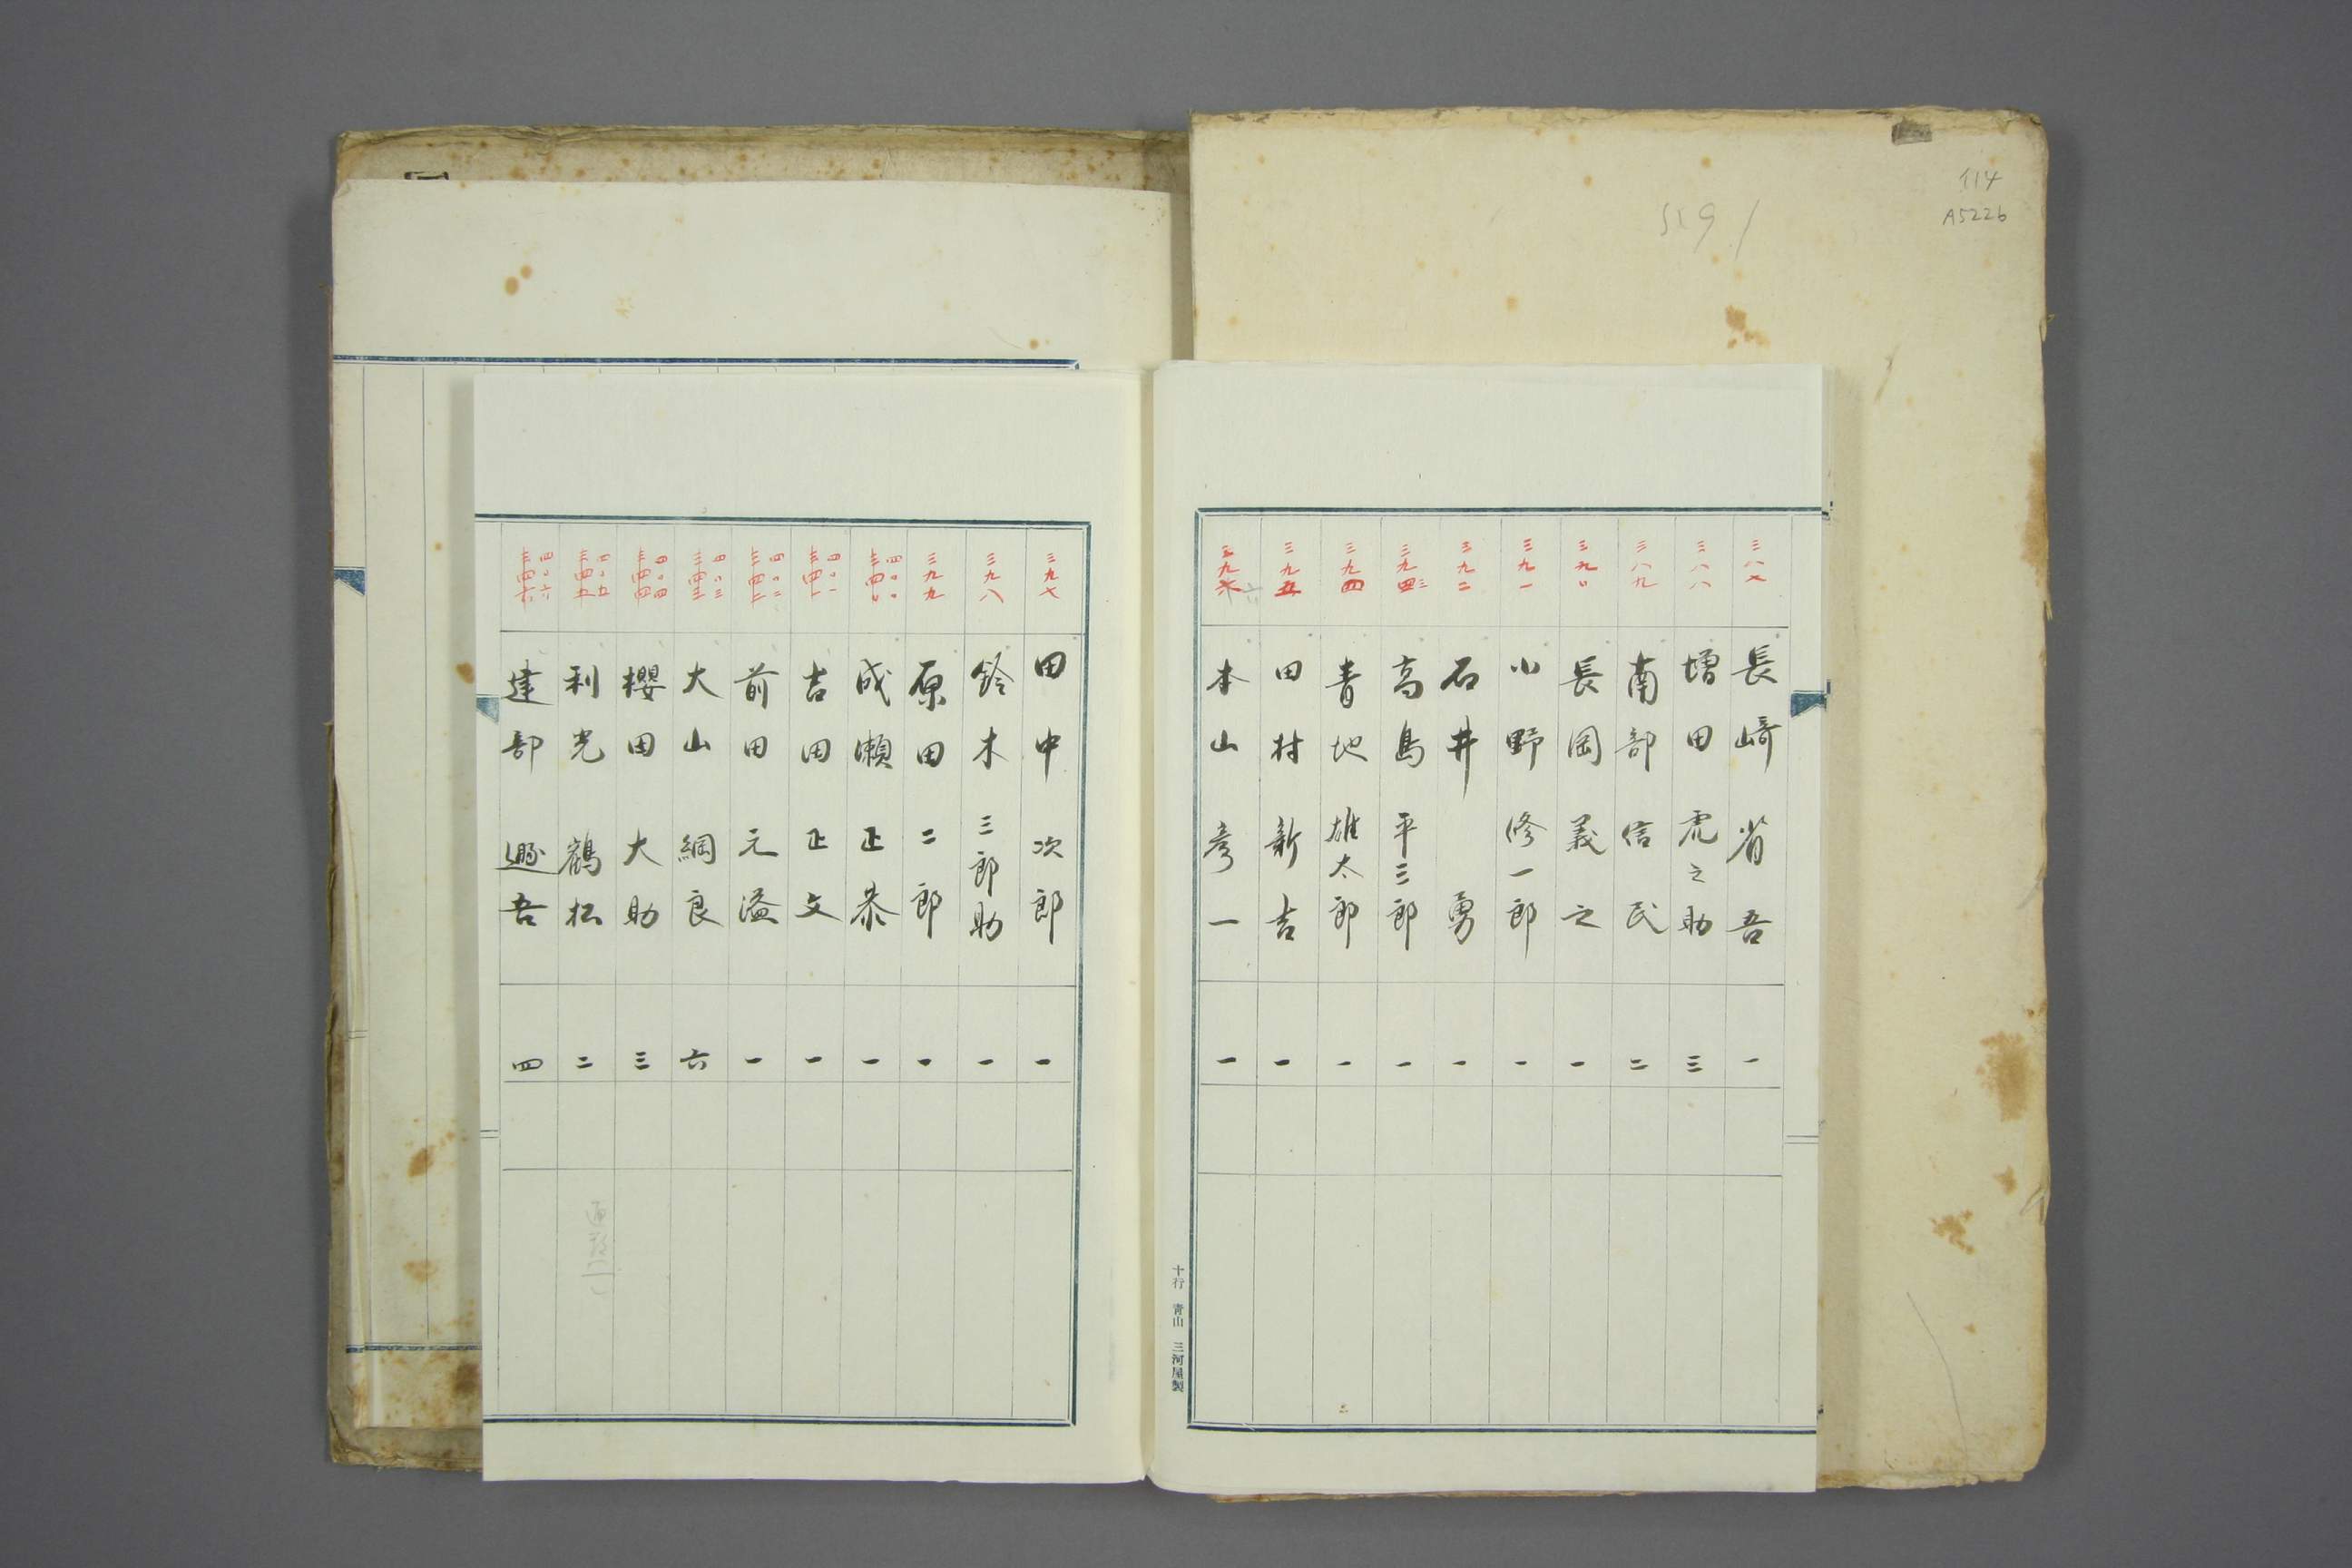 三八七 長﨑省吾 一
三八八 增田虎之助 三
三八九 南部信民 二
三九〇 長岡義之 一
三九一 小野修一郎 一
三九二 石井勇 一
三九 三 高島平三郎 一
三九四 青地雄太郎 一
三九五 田村新吉 一
三九六 本山彦一 一
十行 青山 三河屋製
三九七 田中次郎 一
三九八 鈴木三郎助 一
三九九 原田二郎 一
四〇〇 成瀬正恭 一
四〇一 吉田正文 一
四〇二 前田元溫 一
四〇三 大山綱良 六
四〇四 櫻田大助 三
四〇五 利光鶴松 二
四〇六 建部遯吾 四
114
A5226